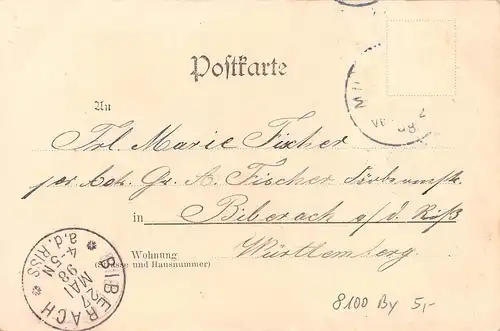 Postkarte
An
Frl. Marie Fischer
per Adr. Gr. A. Fischer
in Biberach a/d. Riß
Wohnung Württemberg.
(Strasse und Hausnummer)
BIBERACH
a.d. RISS
27
MAI
98
4-5N
8100 By 5,-